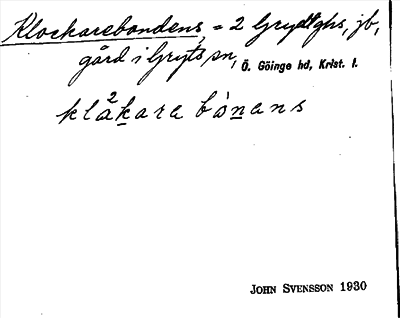 Klockarebondens, = 2 Gryd ghs, jb,
gård i Gryts sn, Ö. Göinge hd, Krist. l.
klåkara bònans
2
JOHN SVENSSON 1930